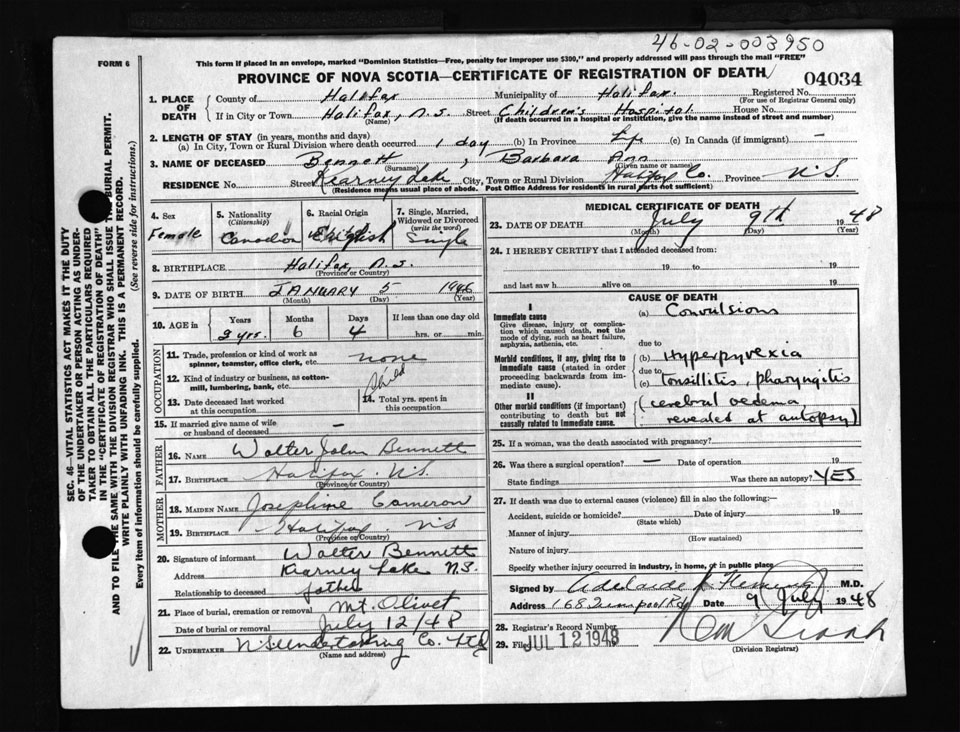 46-02-003950
FORM 6
This form if placed in an envelope, marked "Dominion Statistics—Free, penalty for improper use $300," and properly addressed will pass through the mail "FREE"
PROVINCE OF NOVA SCOTIA—CERTIFICATE OF REGISTRATION OF DEATH
04034
1. PLACE OF DEATH County of Halifax Municipality of Halifax Registered No.
(For use of Registrar General only)
If in City or Town Halifax, N.S. Street Children's Hospital House No.
(Name) (If death occurred in a hospital or institution, give the name instead of street and number)
2. LENGTH OF STAY (in years, months and days)
(a) In City, Town or Rural Division where death occurred 1 day (b) In Province Life (c) In Canada (if immigrant) —
3. NAME OF DECEASED Bennett, Barbara Ann
(Surname) (Given name or names)
RESIDENCE No. Street Kearney Lake City, Town or Rural Division Halifax Co. Province N.S.
(Residence means usual place of abode. Post Office Address for residents in rural parts not sufficient)
4. Sex Female
5. Nationality (Citizenship) Canadian
6. Racial Origin English
7. Single, Married, Widowed or Divorced (write the word) Single
8. BIRTHPLACE Halifax, N.S.
(Province or Country)
9. DATE OF BIRTH JANUARY 5 1946
(Month) (Day) (Year)
10. AGE in Years Months Days If less than one day old
2 yrs. 6 4 hrs. or min.
OCCUPATION
11. Trade, profession or kind of work as spinner, teamster, office clerk, etc. none
12. Kind of industry or business, as cotton-mill, lumbering, bank, etc. Child
13. Date deceased last worked at this occupation
14. Total yrs. spent in this occupation
15. If married give name of wife or husband of deceased —
FATHER
16. NAME Walter John Bennett
17. BIRTHPLACE Halifax N.S.
(Province or Country)
MOTHER
18. MAIDEN NAME Josephine Cameron
19. BIRTHPLACE Halifax N.S.
(Province or Country)
20. Signature of informant Walter Bennett
Address Kearney Lake N.S.
Relationship to deceased father
21. Place of burial, cremation or removal Mt. Olivet
Date of burial or removal July 12/48
22. UNDERTAKER N S Undertaking Co. Ltd
(Name and address)
MEDICAL CERTIFICATE OF DEATH
23. DATE OF DEATH July 9th 1948
(Month) (Day) (Year)
24. I HEREBY CERTIFY that I attended deceased from:
19 to 19
and last saw h alive on 19
CAUSE OF DEATH
I
Immediate cause
Give disease, injury or complication which caused death, not the mode of dying, such as heart failure, asphyxia, asthenia, etc.
(a) Convulsions
due to
Morbid conditions, if any, giving rise to immediate cause (stated in order proceeding backwards from immediate cause).
(b) Hyperpyrexia
due to
(c) Tonsillitis, pharyngitis
II
Other morbid conditions (if important) contributing to death but not causally related to immediate cause.
(cerebral oedema, revealed at autopsy)
25. If a woman, was the death associated with pregnancy?
26. Was there a surgical operation? — Date of operation 19
State findings Was there an autopsy? YES
27. If death was due to external causes (violence) fill in also the following:—
Accident, suicide or homicide? Date of injury 19
(State which)
Manner of injury
(How sustained)
Nature of injury
Specify whether injury occurred in industry, in home, or in public place
Signed by Adelaide Fleming M.D.
Address 168 Rd Date 9 July 1948
28. Registrar's Record Number
29. Filed JUL 12 1948
(Division Registrar)
SEC. 46—VITAL STATISTICS ACT MAKES IT THE DUTY
OF THE UNDERTAKER OR PERSON ACTING AS UNDER-
TAKER TO OBTAIN ALL THE PARTICULARS REQUIRED
IN THE "CERTIFICATE OF REGISTRATION OF DEATH"
AND TO FILE THE SAME WITH THE DIVISION REGISTRAR WHO SHALL ISSUE THE BURIAL PERMIT.
WRITE PLAINLY WITH UNFADING INK. THIS IS A PERMANENT RECORD.
Every item of information should be carefully supplied. (See reverse side for instructions.)